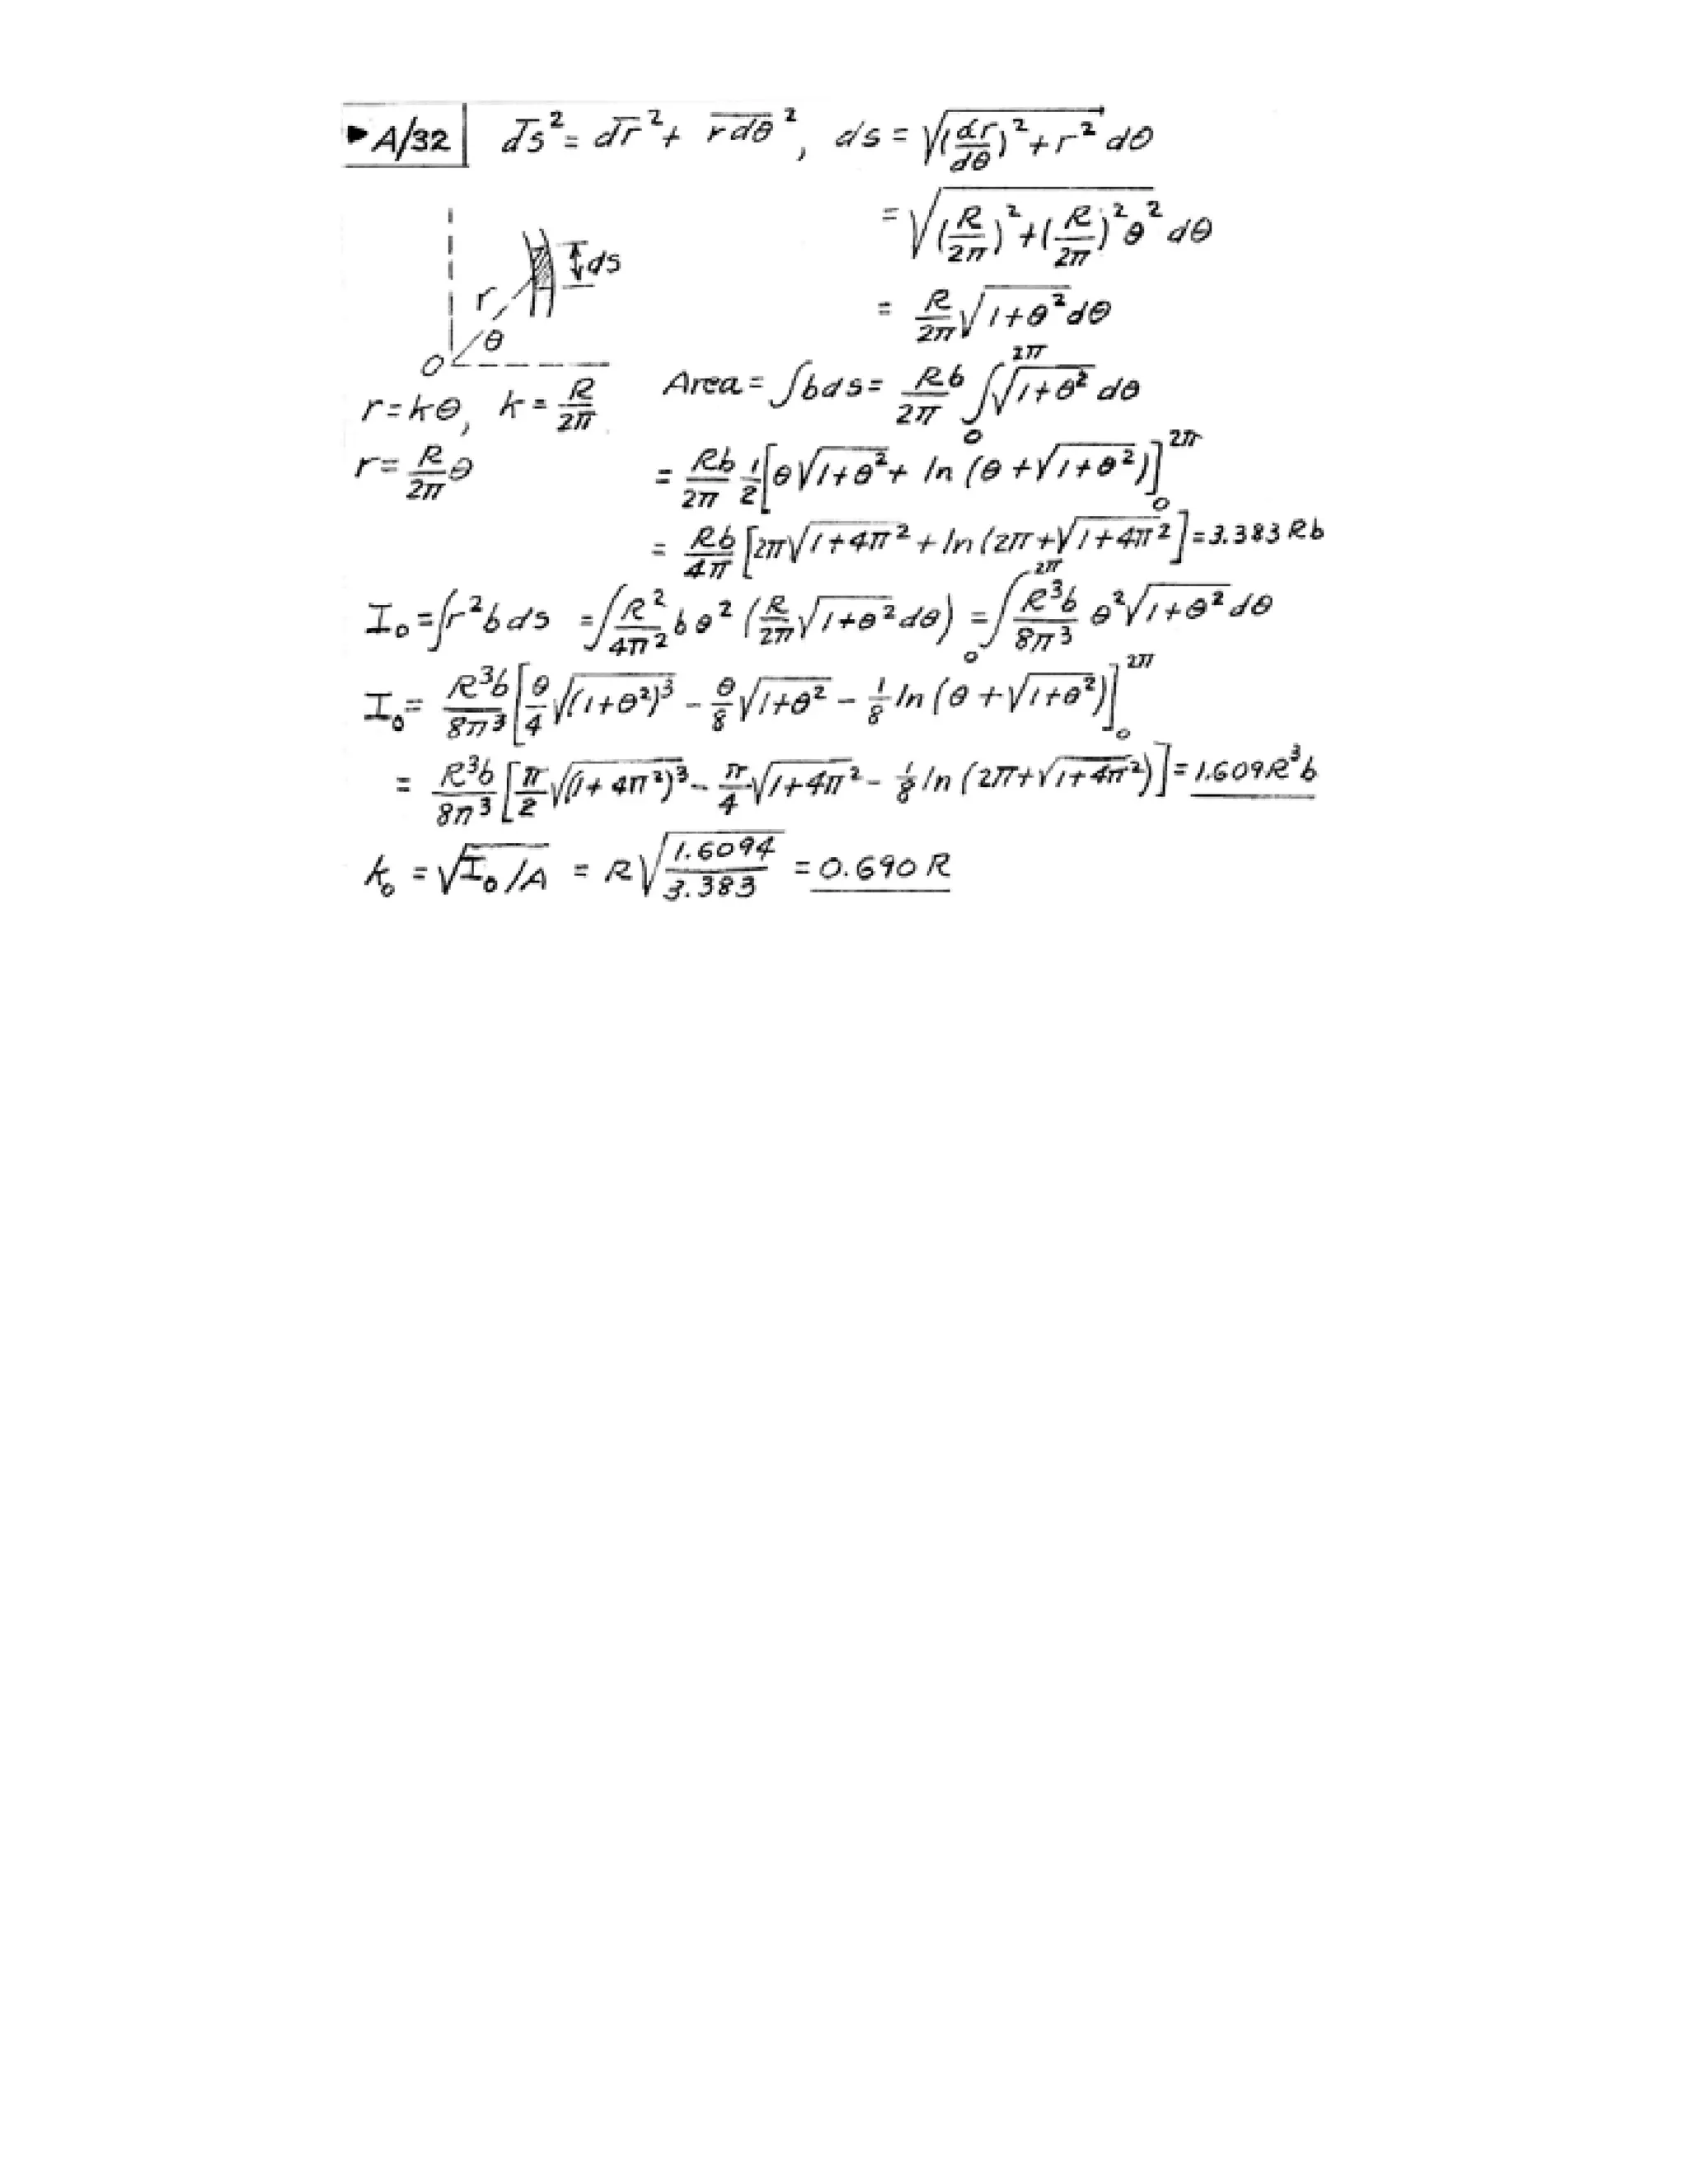 ▶A/32 ds² = dr² + rdθ², ds = √((dr/dθ)² + r²) dθ
= √((R/2π)² + (R/2π)²θ²) dθ
ds
r
= R/2π √(1+θ²) dθ
θ
O
r = kθ, k = R/2π
Area = ∫bds = Rb/2π ∫₀^2π √(1+θ²) dθ
r = R/2π θ
= Rb/2π 1/2 [θ√(1+θ²) + ln (θ + √(1+θ²))]₀^2π
= Rb/4π [2π√(1+4π²) + ln (2π + √(1+4π²)] = 3.383 Rb
I₀ = ∫r²bds = ∫R²/4π² bθ² (R/2π √(1+θ²) dθ) = ∫₀^2π R³b/8π³ θ²√(1+θ²) dθ
I₀ = R³b/8π³ [θ/4 √((1+θ²)³) - θ/8 √(1+θ²) - 1/8 ln (θ + √(1+θ²))]₀^2π
= R³b/8π³ [π/2 √((1+4π²)³) - π/4 √(1+4π²) - 1/8 ln (2π + √(1+4π²))] = 1.609R³b
k₀ = √(I₀/A) = R√(1.6094/3.383) = 0.690 R